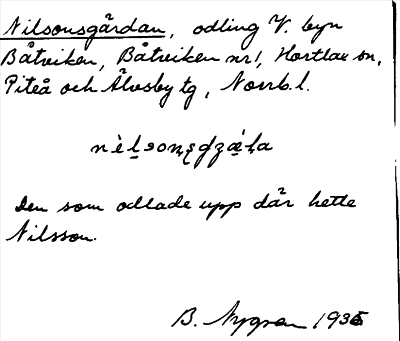 Nilsonsgårdan, odling V. byn
Båtviken, Båtviken nr 1, Hortlax sn,
Piteå och Älvsby tg, Norrb. l.
Den som odlade upp där hette
Nilsson.
B. Nygren 1935